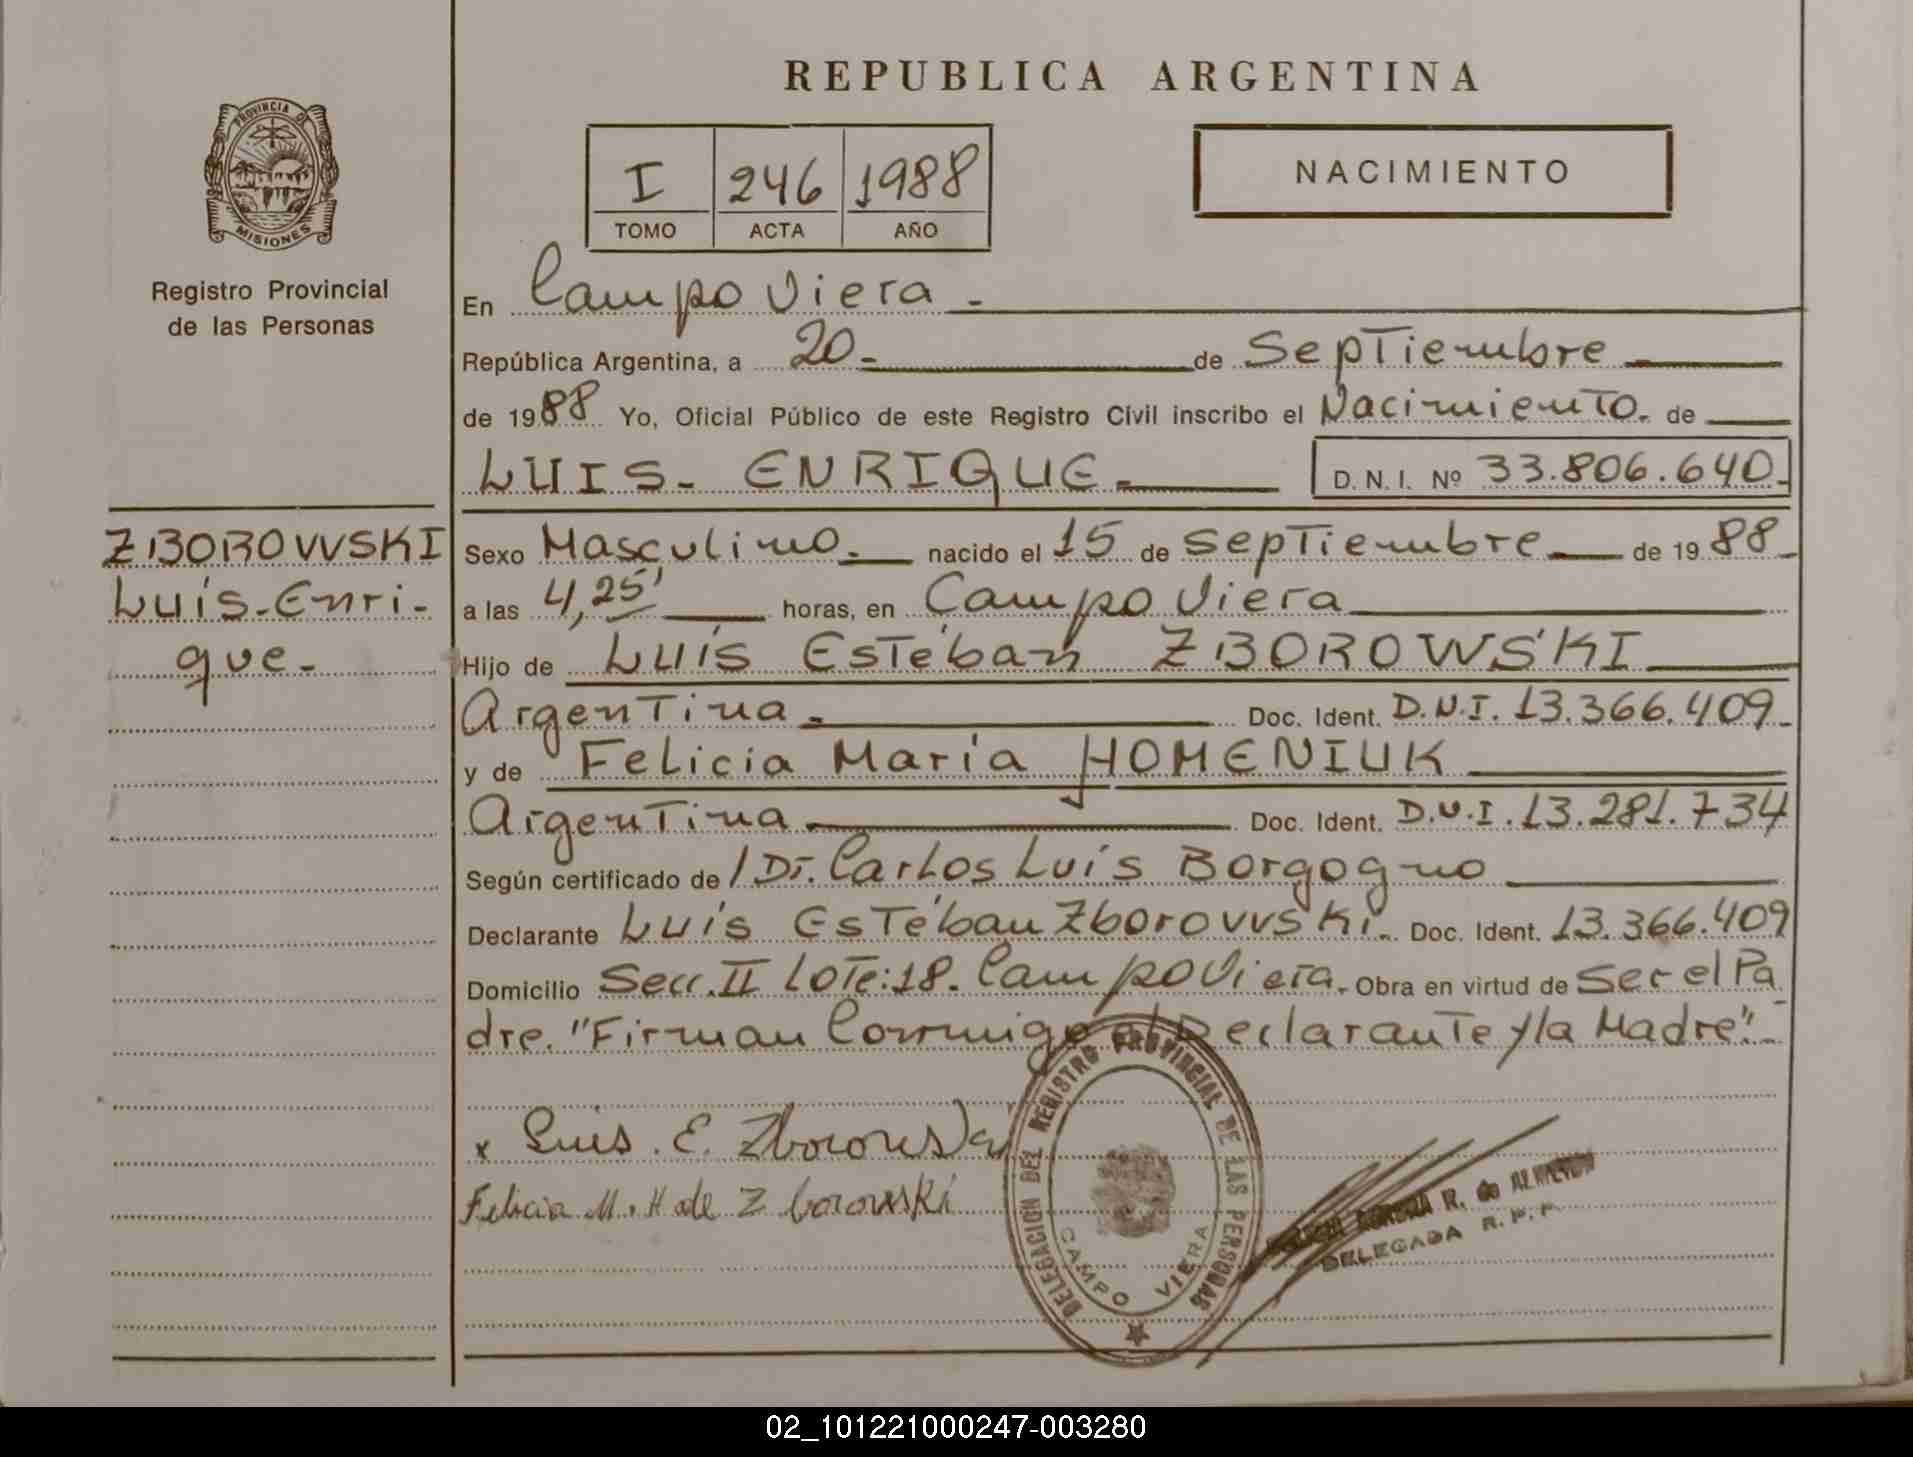 REPUBLICA ARGENTINA
PROVINCIA DE
MISIONES
Registro Provincial
de las Personas
I 246 1988
TOMO ACTA AÑO
NACIMIENTO
En Campo Viera -
República Argentina, a 20- de Septiembre
de 1988 Yo, Oficial Público de este Registro Civil inscribo el Nacimiento. de
LUIS- ENRIQUE- D. N. I. Nº 33.806.640-
ZBOROWSKI
Luís-Enri-
que-
Sexo Masculino. nacido el 15 de septiembre de 1988
a las 4,25' horas, en Campo Viera
Hijo de Luís Estéban ZBOROWSKI
Argentina - Doc. Ident. D.N.I. 13.366.409-
y de Felicia María HOMENIUK
Argentina Doc. Ident. D.N.I. 13.281.734
Según certificado de / Dr. Carlos Luís Borgogno
Declarante Luís Estéban Zborowski. Doc. Ident. 13.366.409
Domicilio Secc. II Lote: 18. Campo Viera. Obra en virtud de Ser el Pa
dre. "Firman Conmigo el Declarante y la Madre".-
x Luis. E. Zborowski
Felicia M. H de Zborowski
DELEGACION DEL REGISTRO PROVINCIAL DE LAS PERSONAS
CAMPO VIERA
R. de ALMEIDA
DELEGADA R. P. P.
02_101221000247-003280